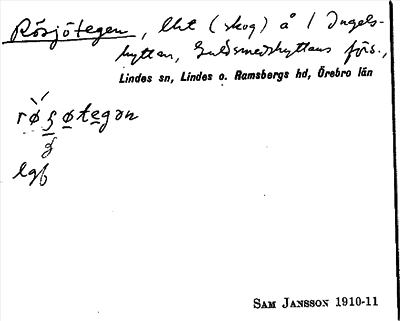 Rösjötegen, lht (skog) å / Ingels-
hyttan, Guldsmedshyttans förs.,
Lindes sn, Lindes o. Ramsbergs hd, Örebro län
røʂøtegən
lgf
SAM JANSSON 1910-11